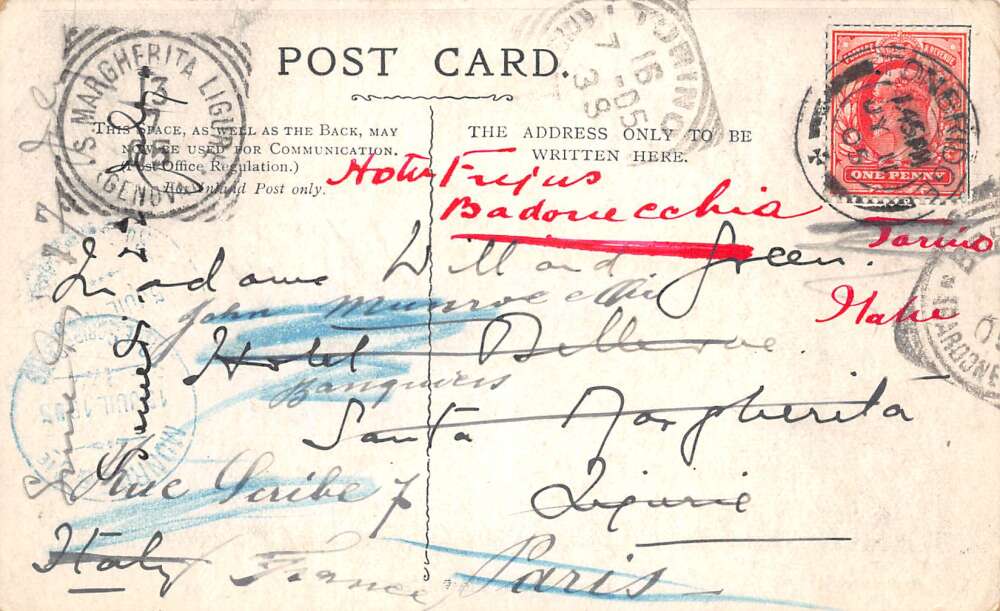 POST CARD.
THIS SPACE, AS WELL AS THE BACK, MAY
NOW BE USED FOR COMMUNICATION.
(Post Office Regulation.)
For Inland Post only.
THE ADDRESS ONLY TO BE
WRITTEN HERE.
S. MARGHERITA LIGURE
(GENOVA)
TORINO
16 - 05
7
ONE PENNY
1 45 PM
JY 11
05
Hotel Frejus
Badonecchia
Torino
Italie
Madame Willard Green.
John Munroe & Cie
Hotel Bellevue
Banquiers
Santa Margherita
Rue Scribe 7
Ligurie
Italy
France
Paris